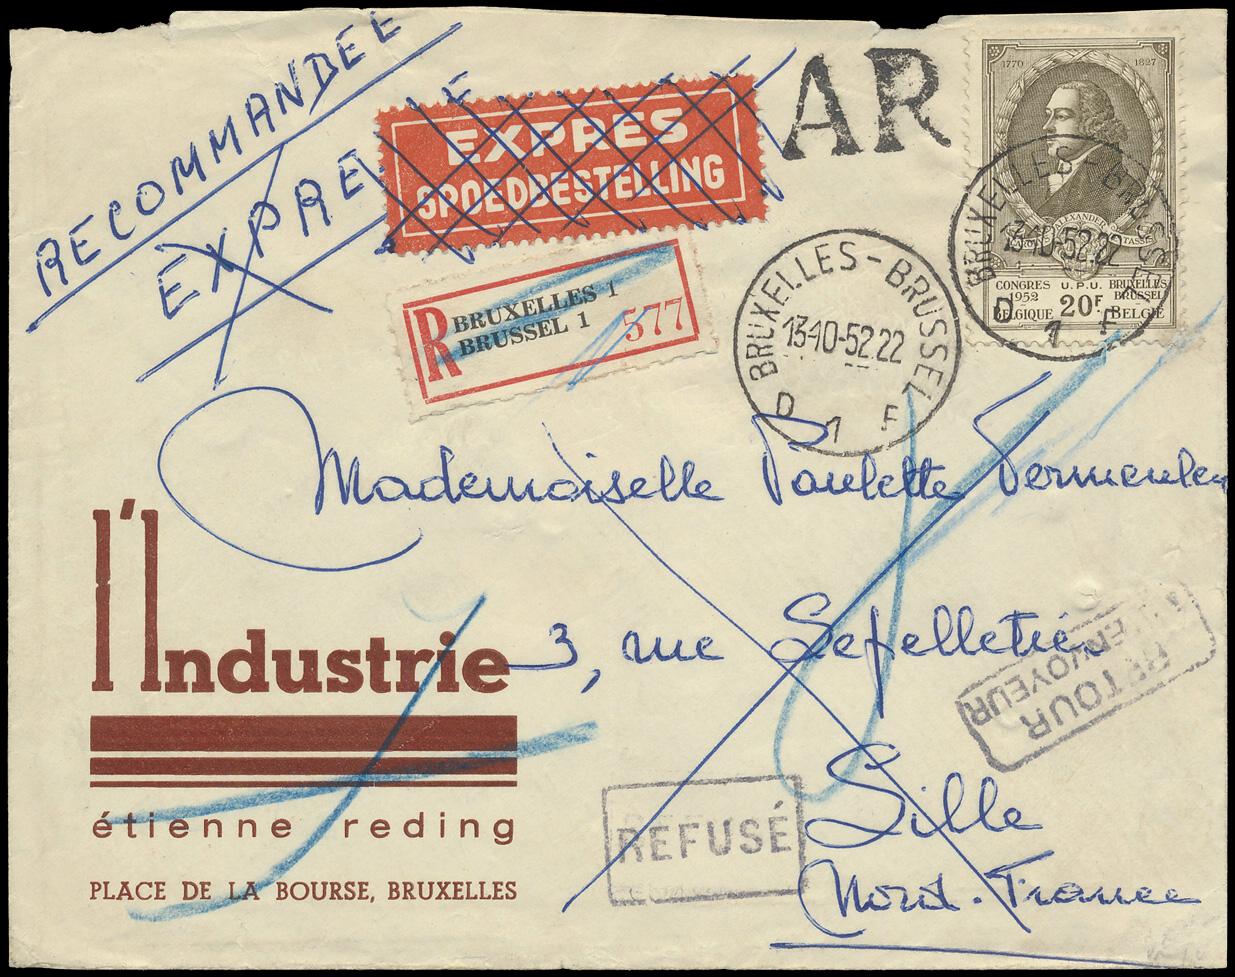 RECOMMANDÉE
EXPRES
EXPRES
SPOEDBESTELLING
AR
1770 1827
CONGRES U.P.U. BRUXELLES
1952 20F BRUSSEL
BELGIQUE BELGIË
BRUXELLES - BRUSSEL
13-10-52.22
D 1 F
R BRUXELLES 1
BRUSSEL 1 577
BRUXELLES - BRUSSEL
13-10-52.22
D 1 F
Mademoiselle Paulette Vermeulen
3, rue Lepelletier
Lille
Nord-France
l'Industrie
étienne reding
PLACE DE LA BOURSE, BRUXELLES
REFUSÉ
RETOUR
À L'ENVOYEUR